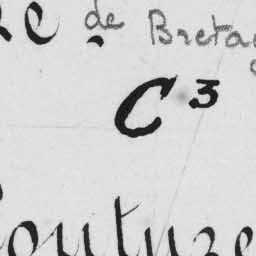 de Bretag
C³
outuze